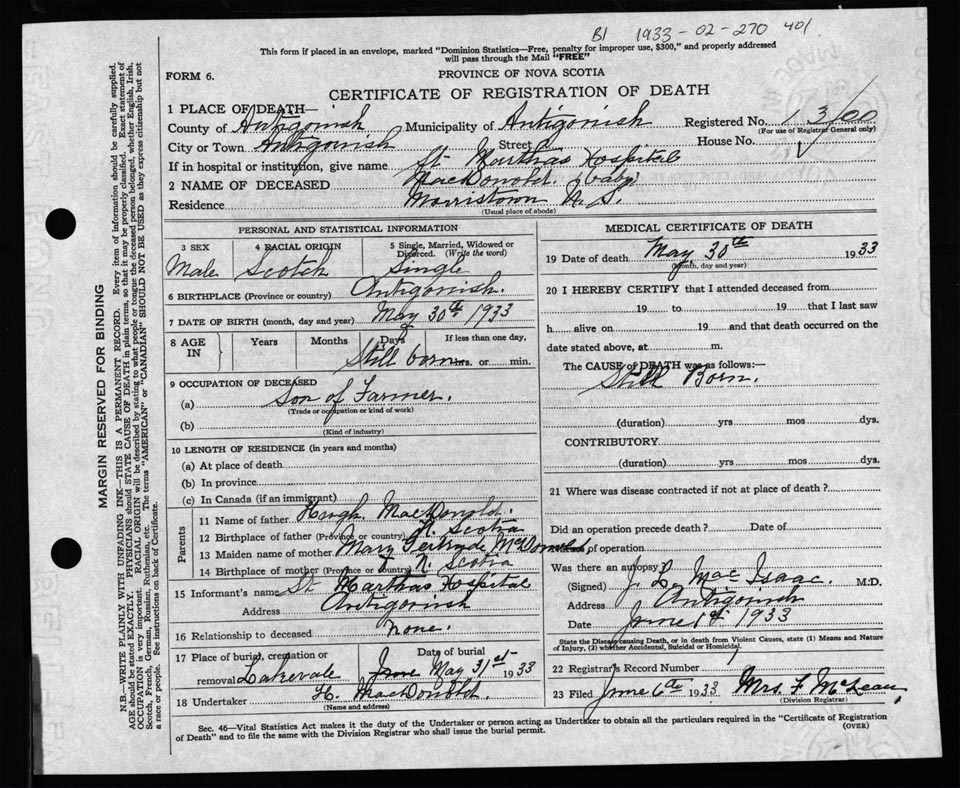 B1 1933-02-270 401
This form if placed in an envelope, marked "Dominion Statistics—Free, penalty for improper use, $300," and properly addressed
will pass through the Mail "FREE"
FORM 6.
PROVINCE OF NOVA SCOTIA
CERTIFICATE OF REGISTRATION OF DEATH
1 PLACE OF DEATH—
County of Antigonish Municipality of Antigonish Registered No.
(For use of Registrar General only)
City or Town Antigonish Street House No.
If in hospital or institution, give name St. Marthas Hospital
2 NAME OF DECEASED MacDonold. (baby)
Residence Morristown N. S.
(Usual place of abode)
PERSONAL AND STATISTICAL INFORMATION
3 SEX 4 RACIAL ORIGIN 5 Single, Married, Widowed or Divorced. (Write the word)
Male. Scotch Single
6 BIRTHPLACE (Province or country) Antigonish.
7 DATE OF BIRTH (month, day and year) May 30th 1933
8 AGE IN Years Months Days If less than one day,
Still born hrs. or min.
9 OCCUPATION OF DECEASED
(a) Son of Farmer.
(Trade or occupation or kind of work)
(b)
(Kind of industry)
10 LENGTH OF RESIDENCE (in years and months)
(a) At place of death
(b) In province
(c) In Canada (if an immigrant)
Parents
11 Name of father Hugh MacDonold.
12 Birthplace of father (Province or country) N. Scotia
13 Maiden name of mother Mary Gertrude McDonold
14 Birthplace of mother (Province or Country) N. Scotia
15 Informant's name St Marthas Hospital
Address Antigonish
16 Relationship to deceased None.
17 Place of burial, cremation or removal Lakevale Date of burial June May 31st 1933
18 Undertaker H. MacDonold.
(Name and address)
MEDICAL CERTIFICATE OF DEATH
19 Date of death May 30th 1933
(Month, day and year)
20 I HEREBY CERTIFY that I attended deceased from
19 to 19 that I last saw
h alive on 19 and that death occurred on the
date stated above, at m.
The CAUSE of DEATH was as follows:—
Still Born.
(duration) yrs mos dys.
CONTRIBUTORY
(duration) yrs mos dys.
21 Where was disease contracted if not at place of death?
Did an operation precede death? Date of
of operation
Was there an autopsy?
(Signed) J. L. MacIsaac. M.D.
Address Antigonish
Date June 1933
State the Disease causing Death, or in death from Violent Causes, state (1) Means and Nature
of Injury, (2) whether Accidental, Suicidal or Homicidal.
22 Registrar's Record Number
23 Filed June 6th 1933 Mrs F McLean
(Division Registrar)
Sec. 46—Vital Statistics Act makes it the duty of the Undertaker or person acting as Undertaker to obtain all the particulars required in the "Certificate of Registration
of Death" and to file the same with the Division Registrar who shall issue the burial permit.
(OVER)
MARGIN RESERVED FOR BINDING
N.B.—WRITE PLAINLY WITH UNFADING INK—THIS IS A PERMANENT RECORD. Every item of information should be carefully supplied.
AGE should be stated EXACTLY. PHYSICIANS should STATE CAUSE OF DEATH in plain terms, so that it may be properly classified. Exact statement of
OCCUPATION is very important. RACIAL ORIGIN will be described by stating to what people or tongue the deceased person belonged, whether English, Irish,
Scotch, French, German, Russian, Ruthenian, etc. The terms "AMERICAN" or "CANADIAN" SHOULD NOT BE USED as they express citizenship but not
a race or people. See instructions on back of Certificate.